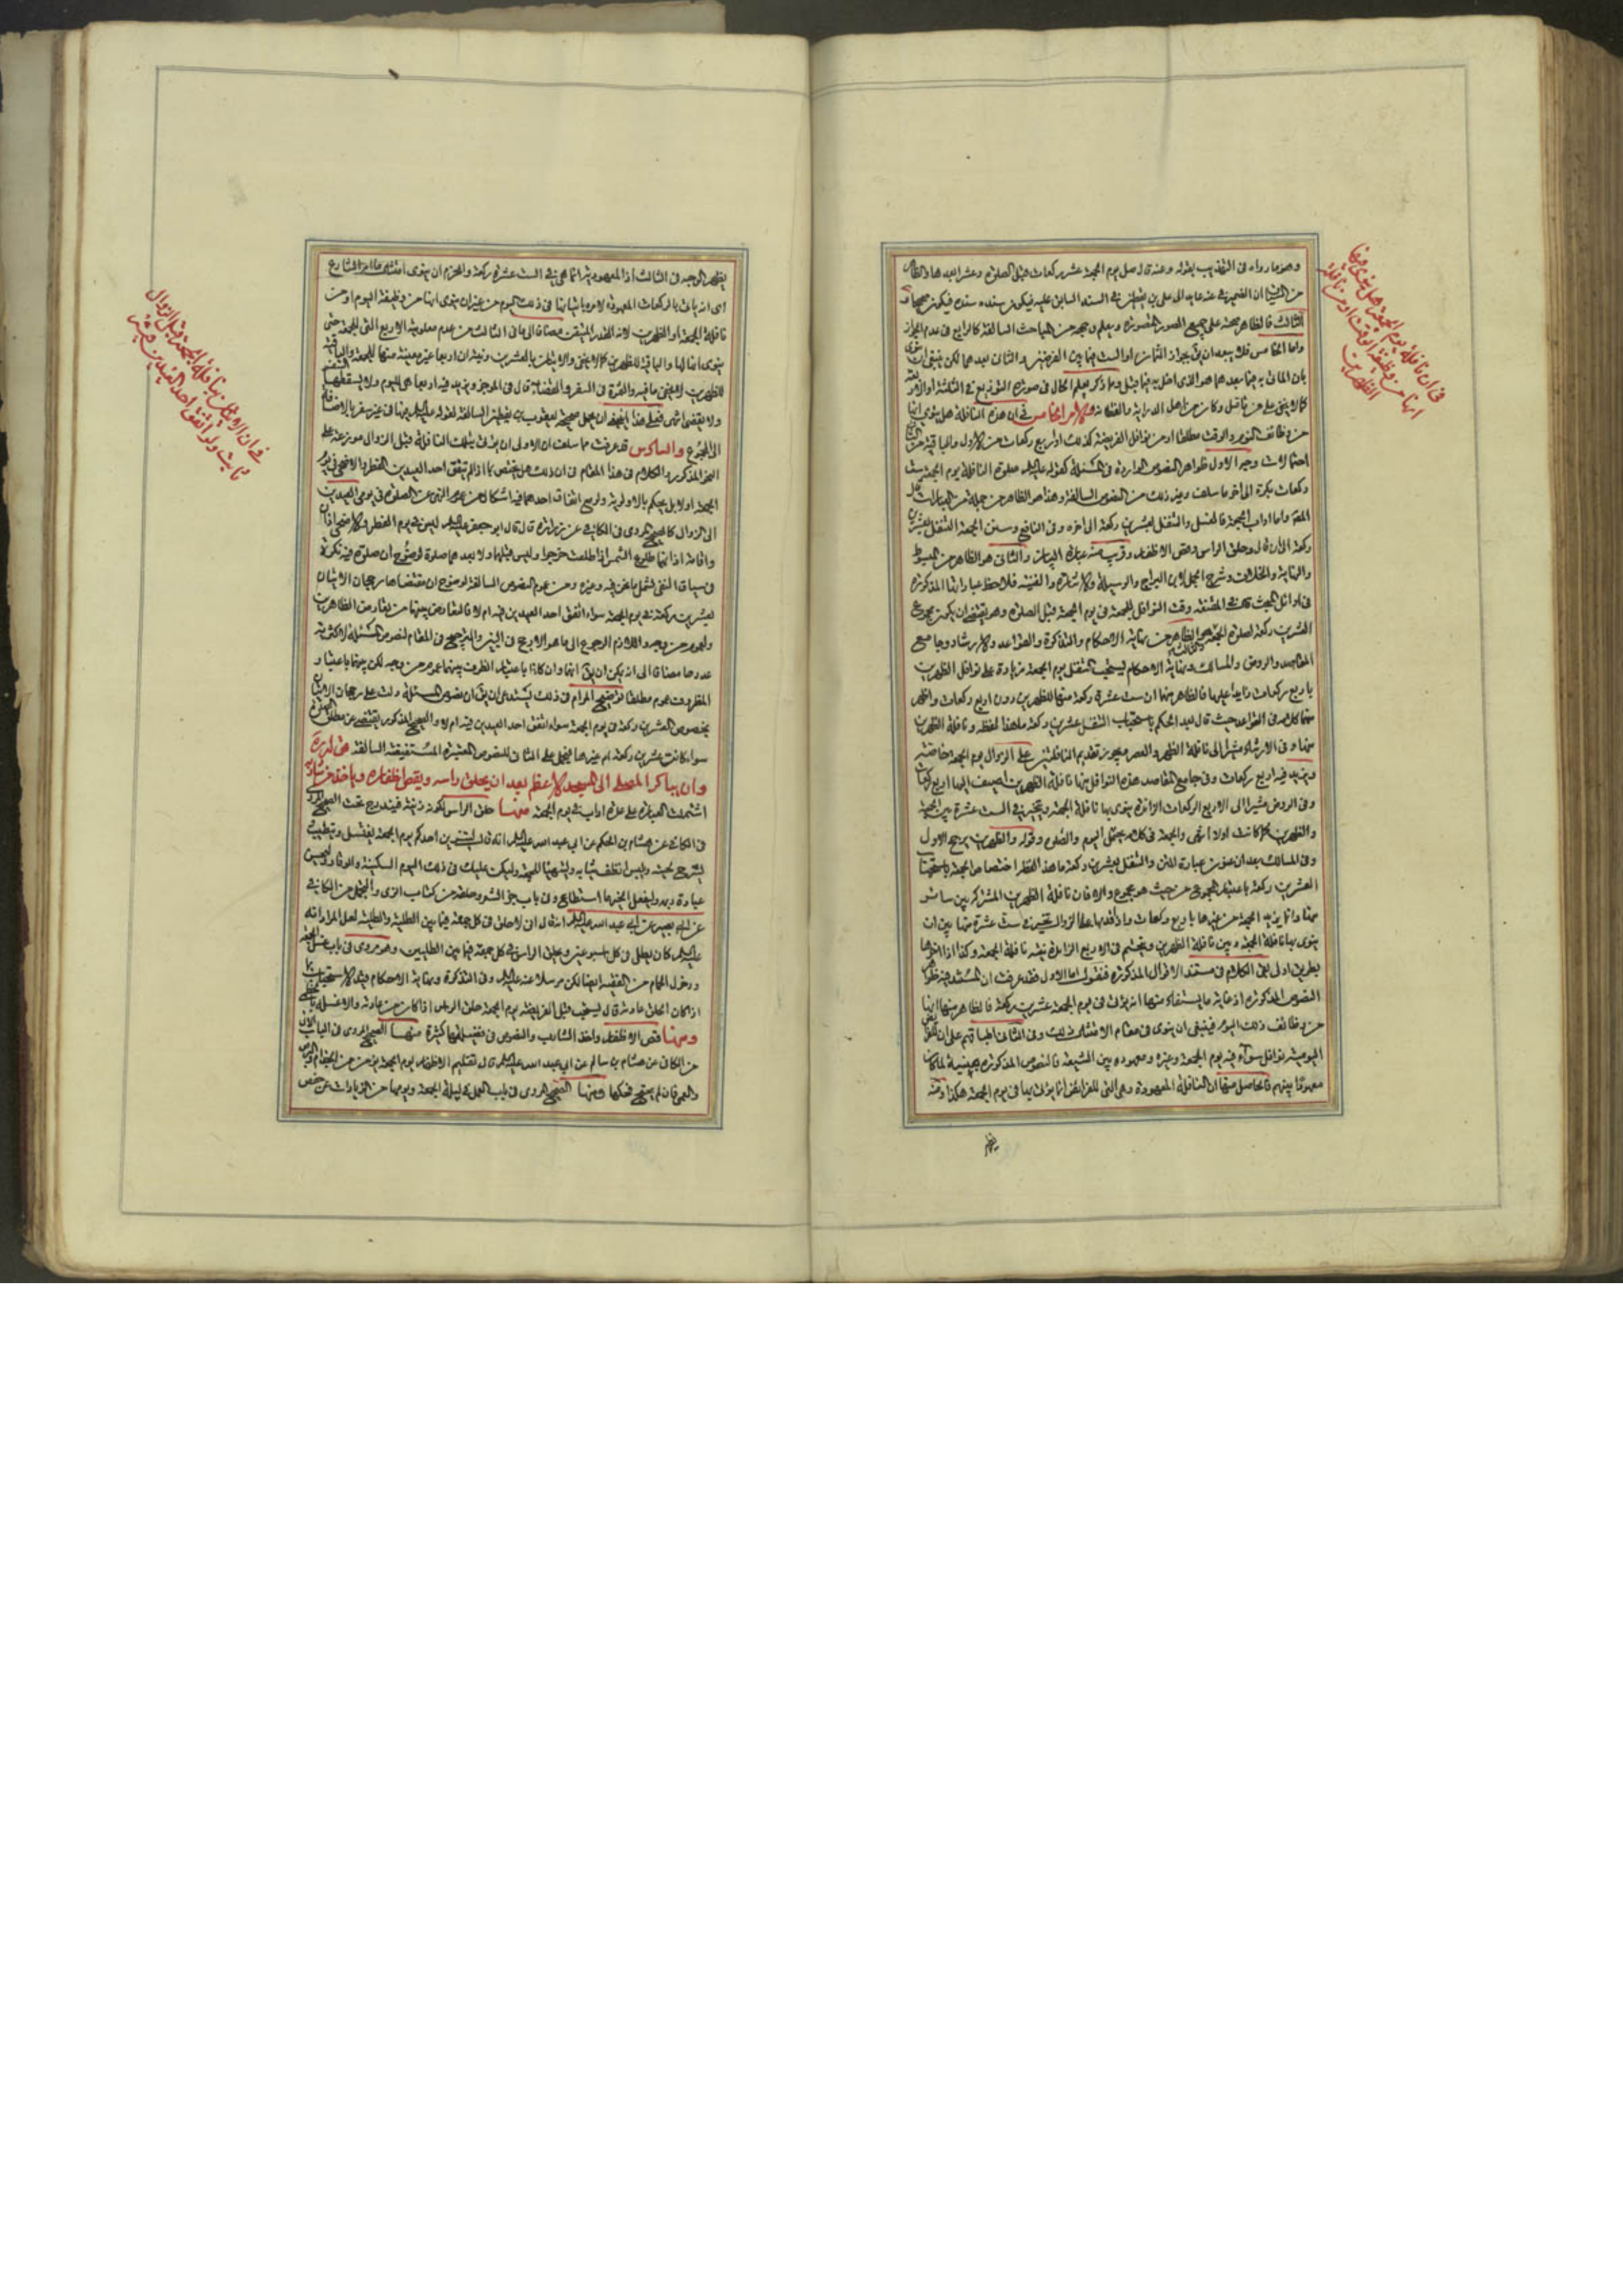 وهو ما رواه في التهذيب بقوله وعنه قال صل يوم الجمعة عشر ركعات قبل الصلوة وعشرا بعدها والظاهر
من الشيخ ان الضمير في عنه عايد الى علي بن يقطين في السند السابق عليه فيكون سنده سنده فيكون صحيحا
الثالث فالظاهر صحته على جميع الصور المتصورة ويعلم وجهه من المباحث السالفة كالرابع في عدم الجواز
واما الخامس فلا يبعد ان يق بجواز الثمان او الست فيما بين الفريضتين والثاني بعدهما لكن ينبغي ان ينوى
بان المأتي به فيما بعدهما هو الذي اخل به فيما قبل ومما ذكر يعلم الحال في صورة التوزيع في الثلثة او الاربعة
كما لا يخفى على من تامل وكان من اهل الدراية والفقاهة والامر الخامس في ان هذه النافلة هل ينوى انها
من وظائف اليوم والوقت مطلقا او من نوافل الفريضة كذلك او اربع ركعات من الاول والباقية من
احتمالات وجه الاول ظواهر النصوص الواردة في المسئلة كقوله عليه السلام صلوة النافلة يوم الجمعة ست
ركعات بكرة الى اخر ما سلف وغير ذلك من النصوص السالفة وهذا هو الظاهر من جملة من العبارات
واما اداب الجمعة فالغسل والتنفل بعشرين ركعة الى اخره وفي النافع وسنن الجمعة التنفل بعشرين
ركعة الى ان قال وحلق الراس وقص الاظفار وقريب منه عبارة البيان والثاني هو الظاهر من المبسوط
والنهاية والخلاف وشرح الجمل لابن البراج والوسيلة والاشارة والغنية فلاحظ عباراتها المذكورة
في اوائل البحث قال في المقنعة وقت النوافل للجمعة في يوم الجمعة قبل الصلوة وهو يقتضى ان يكون مجموع
العشرين ركعة لصلوة الجمعة والثالث هو الظاهر من نهاية الاحكام والتذكرة والقواعد والارشاد وجامع
المقاصد والروض والمسالك ونهاية الاحكام يستحب التنفل يوم الجمعة بزيادة على نوافل الظهرين
باربع ركعات زايدا عليها فالظاهر منها ان ست عشرة ركعة منها للظهرين دون اربع ركعات واظهر
منها كلامه في القواعد حيث قال بعد الحكم باستحباب التنفل عشرين ركعة ما هذا لفظه ونافلة الظهرين
منها وفي الارشاد مشيرا الى نافلة الظهر والعصر ويجوز تقديم النافلتين على الزوال يوم الجمعة خاصة
ويزيد فيه اربع ركعات وفي جامع المقاصد هذه النوافل منها نافلة الظهرين اضيف اليها اربع ركعات
وفي الروض مشيرا الى الاربع الركعات الزائدة ينوى بها نافلة الجمعة ويتخير في الست عشرة بين الجمعة
والظهرين كما كانت اولا انتهى والجمعة في كلامه يحتمل اليوم والصلوة وقوله والظهرين يرجح الاول
وفي المسالك بعد ان عنون عبارة المتن والتنفل بعشرين ركعة ما هذا لفظه اختصاص الجمعة باستحباب
العشرين ركعة باعتبار المجموع من حيث هو مجموع والا فان نافلة الظهرين المشتركة بين سائر
منها وانما يزيد الجمعة عن غيرها باربع ركعات واذا قدمها على الزوال تخير في ست عشرة منها بين ان
ينوى بها نافلة الجمعة وبين نافلة الظهرين ويتحتم في الاربع الزائدة نية نافلة الجمعة وكذا اذا اخرها
بطريق اولى بقى الكلام في مستند الاقوال المذكورة فنقول اما الاول فقد عرفت ان المستند فيه ظواهر
النصوص المذكورة اذ غاية ما يستفاد منها انه يؤتى في يوم الجمعة عشرين ركعة فالظاهر منها انها
من وظائف ذلك اليوم فينبغى ان ينوى في مقام الامتثال ذلك وفي الثاني اطباقهم على ان
اليومية نوافل سواء فيه يوم الجمعة وغيره ومعهوده بين الشيعة فالنصوص المذكورة مبينة لما كان
معهودا بينهم فالحاصل منها ان النافلة المعهودة وهي التي للفرائض انما يؤتى بها في يوم الجمعة هكذا ومنه
يظهر
في ان نافلة يوم الجمعة هل ينوى فيها
انها من وظيفة الوقت او من نافلة
الظهرين
يظهر الوجه في الثالث اذ المعهودية انما هي في الست عشرة ركعة والحزم ان ينوى امتثال ما امر الشارع
اي انه يأت بالركعات المعهودة لامره باتيانها في ذلك اليوم من غير ان ينوى انها من وظيفة اليوم او من
نافلة الجمعة او الظهرين لانه القدر المتيقن مضافا الى ما في الثالث من عدم معلومية الاربع التي للجمعة حتى
ينوى انها لها والباقية للظهرين كما لا يخفى والاتيان بالعشرين ونية ان اربعا غير معينة منها للجمعة والباقية
للظهرين لا يخفى ما فيه والثمرة في السفر والقضاء قال في الموجز ويزيد فيه اربعا هي لليوم ولا يسقطها السفر
ولا يقضى انتهى فعلى هذا يتجه ان يحمل صحيحة يعقوب بن يقطين السالفة لقوله عليه السلام فيها في غير سفر بالاضافة
الى المجموع والسادس قد عرفت مما سلف ان الاولى ان يؤتى بتلك النافلة قبل الزوال موزعة على
النحو المذكور والكلام في هذا المقام في ان ذلك هل يختص بما اذا لم يتفق احد العيدين الفطر والاضحى في يوم
الجمعة اولا بل يحكم بالاولوية ولو مع اتفاق احدهما فيه اشكال من عموم النهى عن الصلوة في يومي العيدين
الى الزوال كالصحيح المروى في الكافي عن زرارة قال قال ابو جعفر عليه السلام ليس في يوم الفطر والاضحى اذان
واقامة اذانهما طلوع الشمس اذا طلعت خرجوا وليس قبلهما ولا بعدهما صلوة لوضوح ان صلوة فيه نكرة
في سياق النفى فتشمل ما نحن فيه وغيره ومن عموم النصوص السالفة لوضوح ان مقتضاها رجحان الاتيان
بعشرين ركعة في يوم الجمعة سواء اتفق احد العيدين فيه ام لا فالتعارض بينهما من تعارض الظاهرين
والعموم من وجه واللازم الرجوع الى ما هو الارجح في البين والترجيح في المقام لنصوص المسئلة لاكثرية
عددها مضافا الى انه يمكن ان يق انهما وان كانا باعتبار الظرف بينهما عموم من وجه لكن بينهما باعتبار
المظروف عموم مطلقا توضيح المرام في ذلك يستدعى ان يق ان نصوص المسئلة دلت على رجحان الاتيان
بخصوص العشرين ركعة في يوم الجمعة سواء اتفق احد العيدين فيه ام لا والصحيح المذكور يقتضى عن مطلق الصلوة
سواء كانت عشرين ركعة ام غيرها فيحمل على الثاني للنصوص المعتبرة المستفيضة السالفة قوله
وان يباكر المصلى الى المسجد الاعظم بعد ان يحلق راسه ويقص اظفاره وياخذ من شاربه
اشتملت العبارة على عدة اداب في يوم الجمعة منها حلق الراس لكونه زينة فيندرج تحت الصحيح المروى
في الكافي عن هشام بن الحكم عن ابي عبد الله عليه السلام انه قال ليتزين احدكم يوم الجمعة يغتسل ويتطيب
ويسرح لحيته ويلبس انظف ثيابه وليتهيأ للجمعة وليكن عليك في ذلك اليوم السكينة والوقار وليحسن
عبادة ربه وليفعل الخير ما استطاع وفي باب جز الشعر وحلقه من كتاب الزى والتجمل من الكافي
عن ابي بصير عن ابي عبد الله عليه السلام انه قال اني لاحلق في كل جمعة فيما بين الطلية والطلية لعل المراد انه
عليه السلام كان يطلى في كل اسبوعين ويحلق الراس في كل جمعة فيما بين الطليتين وهو مروى في باب غسل الجمعة
ودخول الحمام من الفقيه ايضا لكن مرسلا عنه عليه السلام وفي التذكرة ونهاية الاحكام قيد الاستحباب بما
اذا كان الحلق عادته قال يستحب قبل الفريضة يوم الجمعة حلق الراس اذا كان من عادته والا غسله بالخطمى
ومنها قص الاظفار واخذ الشارب والنصوص في فضيلتهما كثيرة منها الصحيح المروى في الباب
من الكافي عن هشام بن سالم عن ابي عبد الله عليه السلام قال تقليم الاظفار يوم الجمعة يؤمن من الجذام والبرص
والعمى فان لم يحتج فحكها ومنها الصحيح المروى في باب العمل في ليلة الجمعة ويومها من الزيادات عن حفص
في ان الاتيان بنافلة الجمعة قبل الزوال
ثابت ولو اتفق احد العيدين فيه